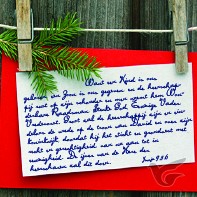 Want een Kind is ons
geboren, een Zoon is ons gegeven en de heerschap-
pij rust op zijn schouder en men noemt hem Won-
derbare Raadsman, Sterke God, Eeuwige Vader,
Vredevorst. Groot zal de heerschappij zijn en ein-
deloos de vrede op de troon van David en over zijn
koninkrijk, doordat hij het sticht en grondvest met
recht en gerechtigheid, van nu aan tot in
eeuwigheid. De ijver van de Here der
heerscharen zal dit doen.